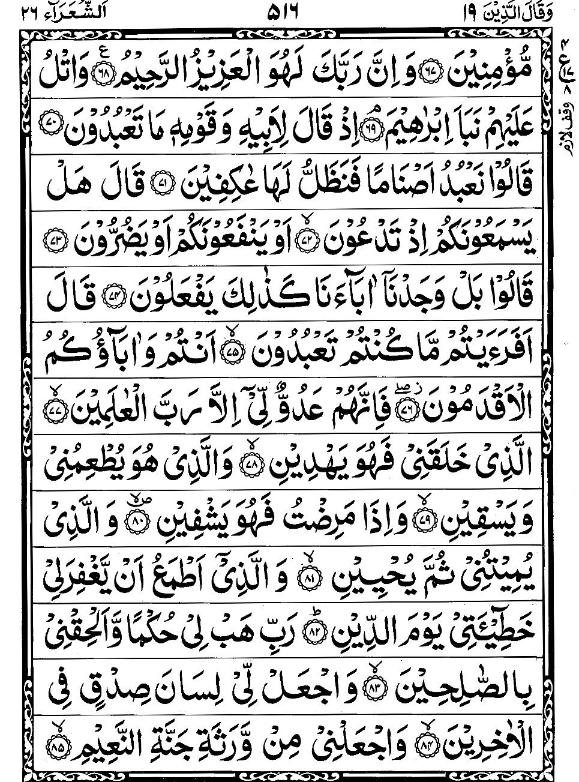 وَقَالَ الَّذِيْنَ ١٩ ٥١٦ اَلشُّعَرَآء ٢٦
مُّؤْمِنِيْنَ ﴿٦٧﴾ وَاِنَّ رَبَّكَ لَهُوَ الْعَزِيْزُ الرَّحِيْمُ ﴿٦٨﴾ وَاتْلُ
عَلَيْهِمْ نَبَاَ اِبْرٰهِيْمَ ﴿٦٩﴾ اِذْ قَالَ لِاَبِيْهِ وَقَوْمِهٖ مَا تَعْبُدُوْنَ ﴿٧٠﴾
قَالُوْا نَعْبُدُ اَصْنَامًا فَنَظَلُّ لَهَا عٰكِفِيْنَ ﴿٧١﴾ قَالَ هَلْ
يَسْمَعُوْنَكُمْ اِذْ تَدْعُوْنَ ﴿٧٢﴾ اَوْ يَنْفَعُوْنَكُمْ اَوْ يَضُرُّوْنَ ﴿٧٣﴾
قَالُوْا بَلْ وَجَدْنَآ اٰبَآءَنَا كَذٰلِكَ يَفْعَلُوْنَ ﴿٧٤﴾ قَالَ
اَفَرَءَيْتُمْ مَّا كُنْتُمْ تَعْبُدُوْنَ ﴿٧٥﴾ اَنْتُمْ وَاٰبَآؤُكُمُ
الْاَقْدَمُوْنَ ﴿٧٦﴾ فَاِنَّهُمْ عَدُوٌّ لِّيْٓ اِلَّا رَبَّ الْعٰلَمِيْنَ ﴿٧٧﴾
الَّذِيْ خَلَقَنِيْ فَهُوَ يَهْدِيْنِ ﴿٧٨﴾ وَالَّذِيْ هُوَ يُطْعِمُنِيْ
وَيَسْقِيْنِ ﴿٧٩﴾ وَاِذَا مَرِضْتُ فَهُوَ يَشْفِيْنِ ﴿٨٠﴾ وَالَّذِيْ
يُمِيْتُنِيْ ثُمَّ يُحْيِيْنِ ﴿٨١﴾ وَالَّذِيْٓ اَطْمَعُ اَنْ يَّغْفِرَ لِيْ
خَطِيْٓئَتِيْ يَوْمَ الدِّيْنِ ﴿٨٢﴾ رَبِّ هَبْ لِيْ حُكْمًا وَّاَلْحِقْنِيْ
بِالصّٰلِحِيْنَ ﴿٨٣﴾ وَاجْعَلْ لِّيْ لِسَانَ صِدْقٍ فِي
الْاٰخِرِيْنَ ﴿٨٤﴾ وَاجْعَلْنِيْ مِنْ وَّرَثَةِ جَنَّةِ النَّعِيْمِ ﴿٨٥﴾
وقف لازم